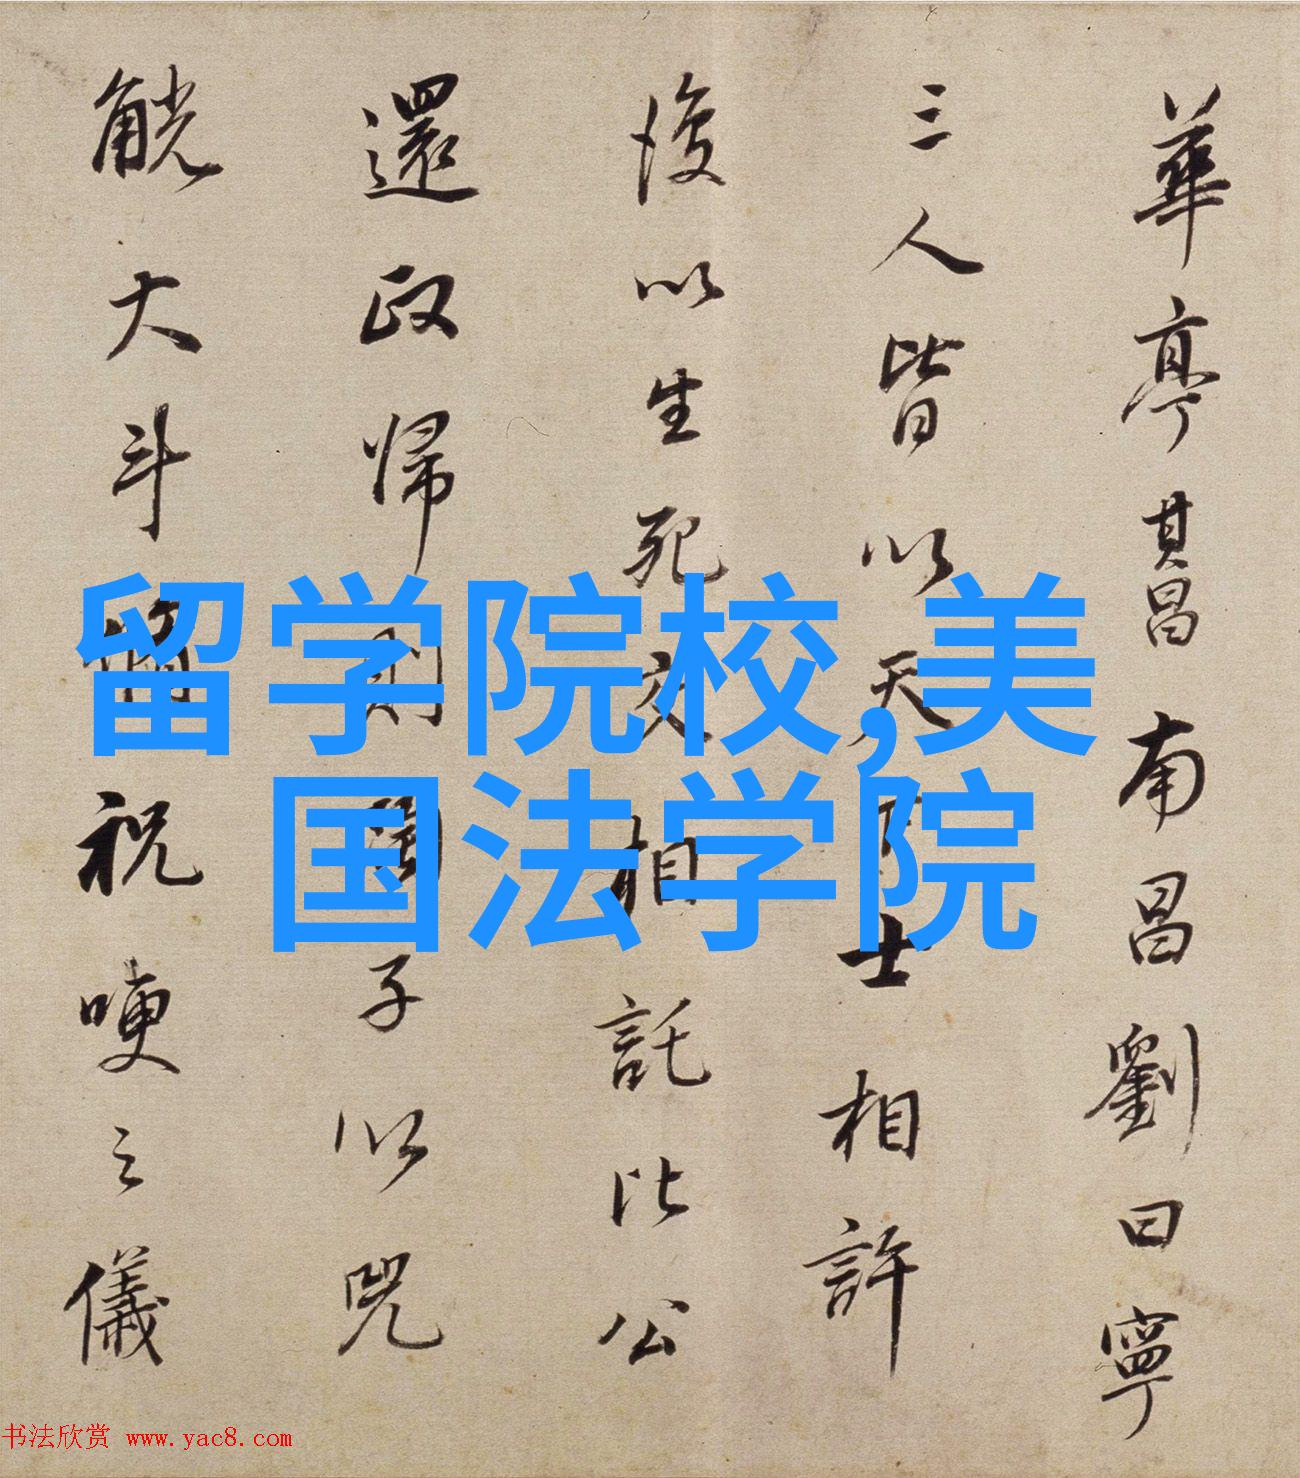 華亭其昌南昌劉曰寧
三人皆以天下士相許
後以生死交相託比公
還政歸則獨子以兕
觥大斗備祝哽之儀
留学院校,美
国法学院
书法欣赏 www.yac8.com